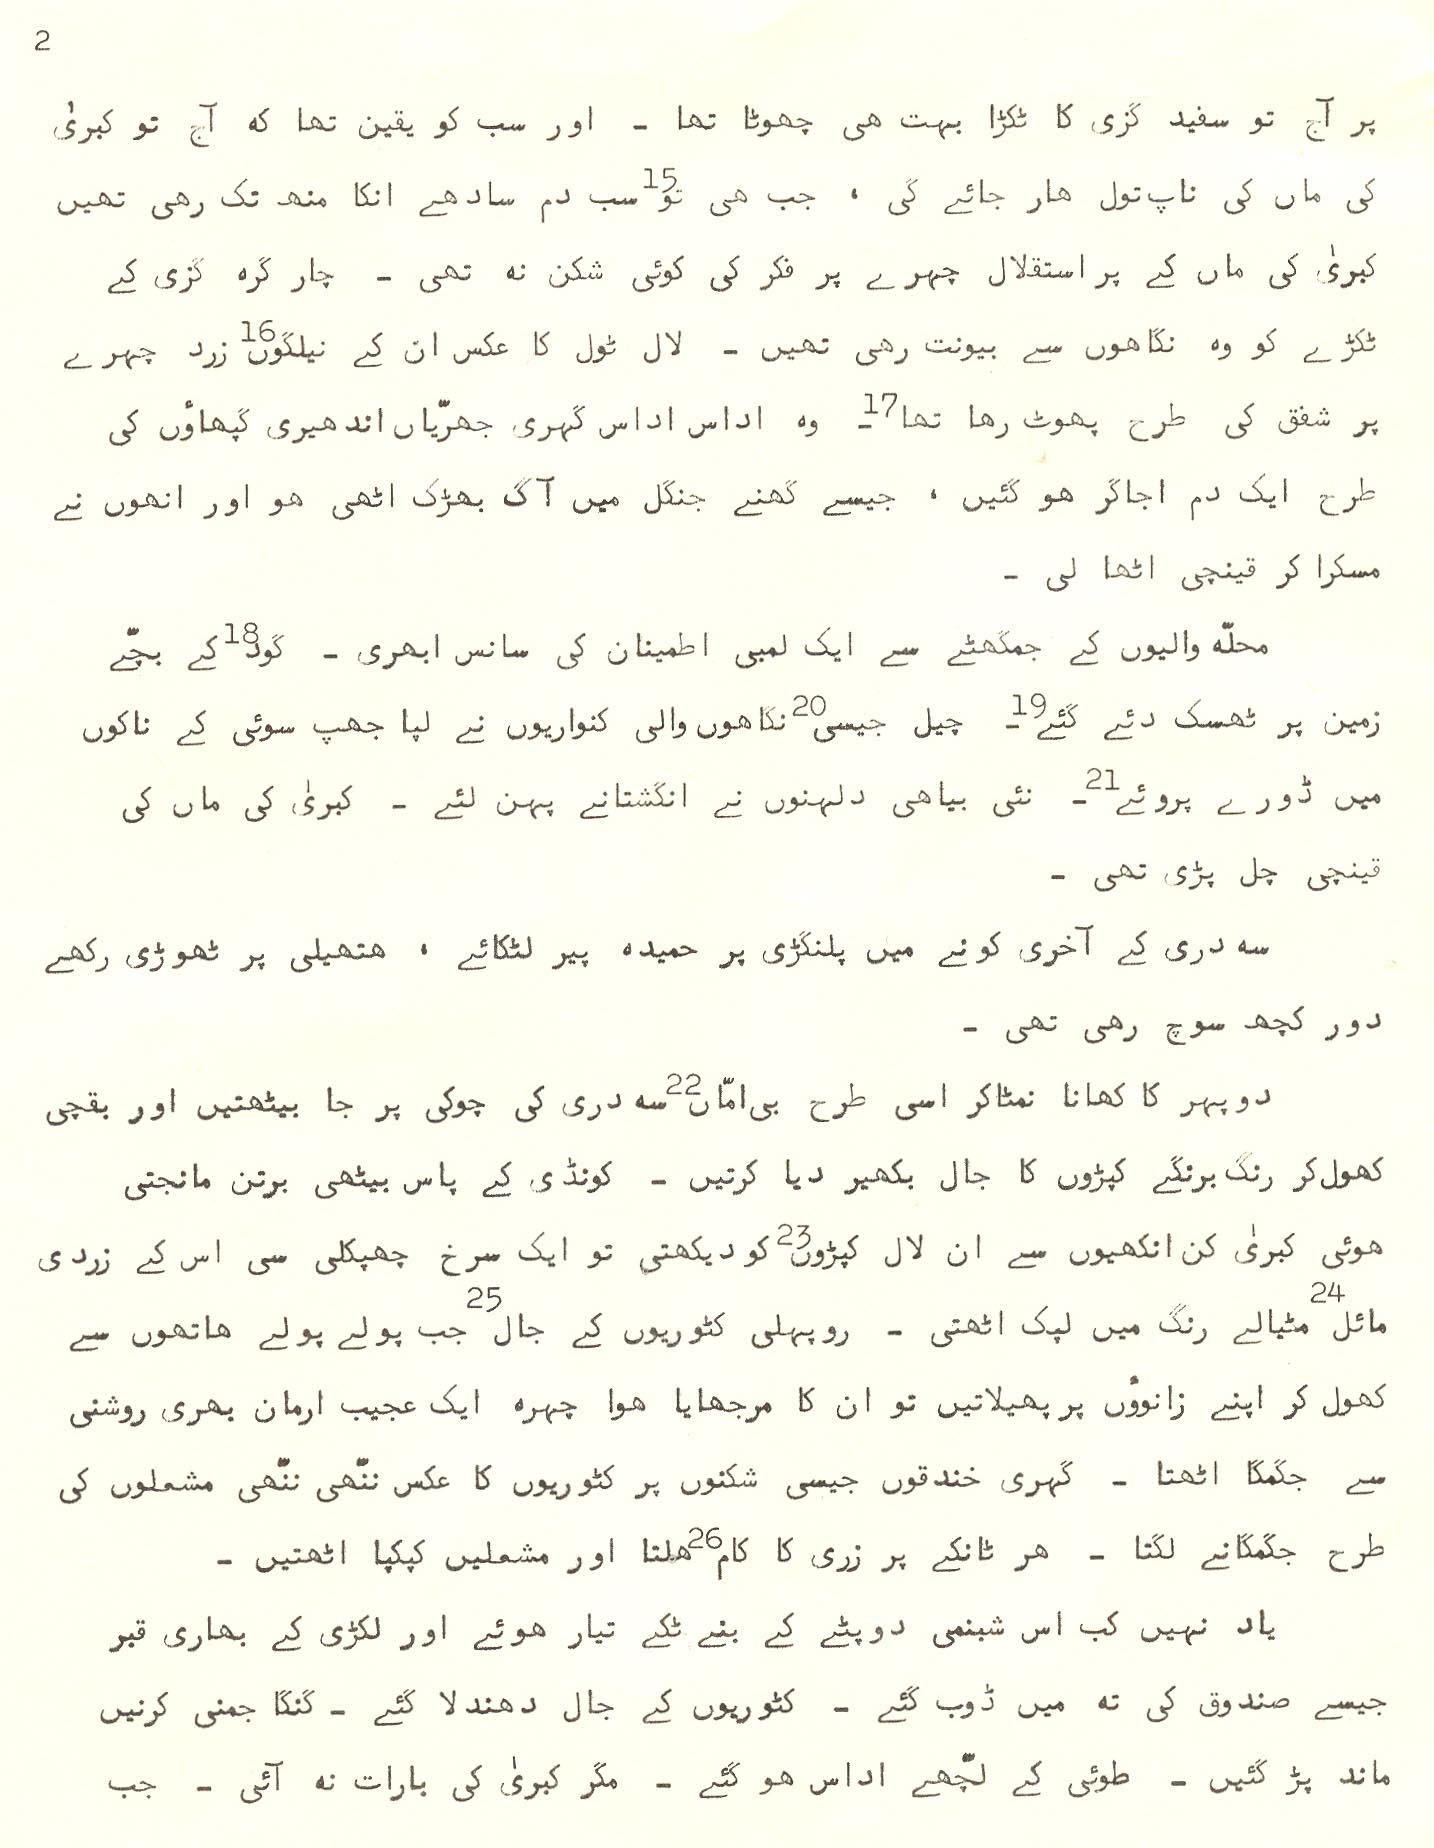 2
پر آج تو سفید گزی کا ٹکڑا بہت ھی چھوٹا تھا ـ اور سب کو یقین تھا کہ آج تو کبریٰ
کی ماں کی ناپ تول ھار جائے گی ، جب ھی تو15 سب دم سادھے انکا منھ تک رھی تھیں
کبریٰ کی ماں کے پر استقلال چہرے پر فکر کی کوئی شکن نہ تھی ـ چار گرہ گزی کے
ٹکڑے کو وہ نگاھوں سے بیونت رھی تھیں ـ لال ٹول کا عکس ان کے نیلگوں16 زرد چہرے
پر شفق کی طرح پھوٹ رھا تھا17ـ وہ اداس اداس گہری جھرّیاں اندھیری گپھاؤں کی
طرح ایک دم اجاگر ھو گئیں ، جیسے گھنے جنگل میں آگ بھڑک اٹھی ھو اور انھوں نے
مسکرا کر قینچی اٹھا لی ـ
محلّہ والیوں کے جمگھٹے سے ایک لمبی اطمینان کی سانس ابھری ـ گود18 کے بچّے
زمین پر ٹھسک دئے گئے19ـ چیل جیسی20 نگاھوں والی کنواریوں نے لپا جھپ سوئی کے ناکوں
میں ڈورے پروئے21ـ نئی بیاھی دلہنوں نے انگشتانے پہن لئے ـ کبریٰ کی ماں کی
قینچی چل پڑی تھی ـ
سہ دری کے آخری کونے میں پلنگڑی پر حمیدہ پیر لٹکائے ، ھتھیلی پر ٹھوڑی رکھے
دور کچھ سوچ رھی تھی ـ
دوپہر کا کھانا نمٹاکر اسی طرح بی امّاں22 سہ دری کی چوکی پر جا بیٹھتیں اور بقچی
کھول کر رنگ برنگے کپڑوں کا جال بکھیر دیا کرتیں ـ کونڈی کے پاس بیٹھی برتن مانجتی
ھوئی کبریٰ کن انکھیوں سے ان لال کپڑوں23 کو دیکھتی تو ایک سرخ چھپکلی سی اس کے زردی
مائل24 مٹیالے رنگ میں لپک اٹھتی ـ روپہلی کٹوریوں کے جال25 جب پولے پولے ھاتھوں سے
کھول کر اپنے زانووٴں پر پھیلاتیں تو ان کا مرجھایا ھوا چہرہ ایک عجیب ارمان بھری روشنی
سے جگمگا اٹھتا ـ گہری خندقوں جیسی شکنوں پر کٹوریوں کا عکس ننّھی ننّھی مشعلوں کی
طرح جگمگانے لگتا ـ ھر ٹانکے پر زری کا کام26 ھلتا اور مشعلیں کپکپا اٹھتیں ـ
یاد نہیں کب اس شبنمی دوپٹے کے بنے ٹکے تیار ھوئے اور لکڑی کے بھاری قبر
جیسے صندوق کی تہ میں ڈوب گئے ـ کٹوریوں کے جال دھندلا گئے ـ گنگا جمنی کرنیں
ماند پڑ گئیں ـ طوئی کے لچّھے اداس ھو گئے ـ مگر کبریٰ کی بارات نہ آئی ـ جب